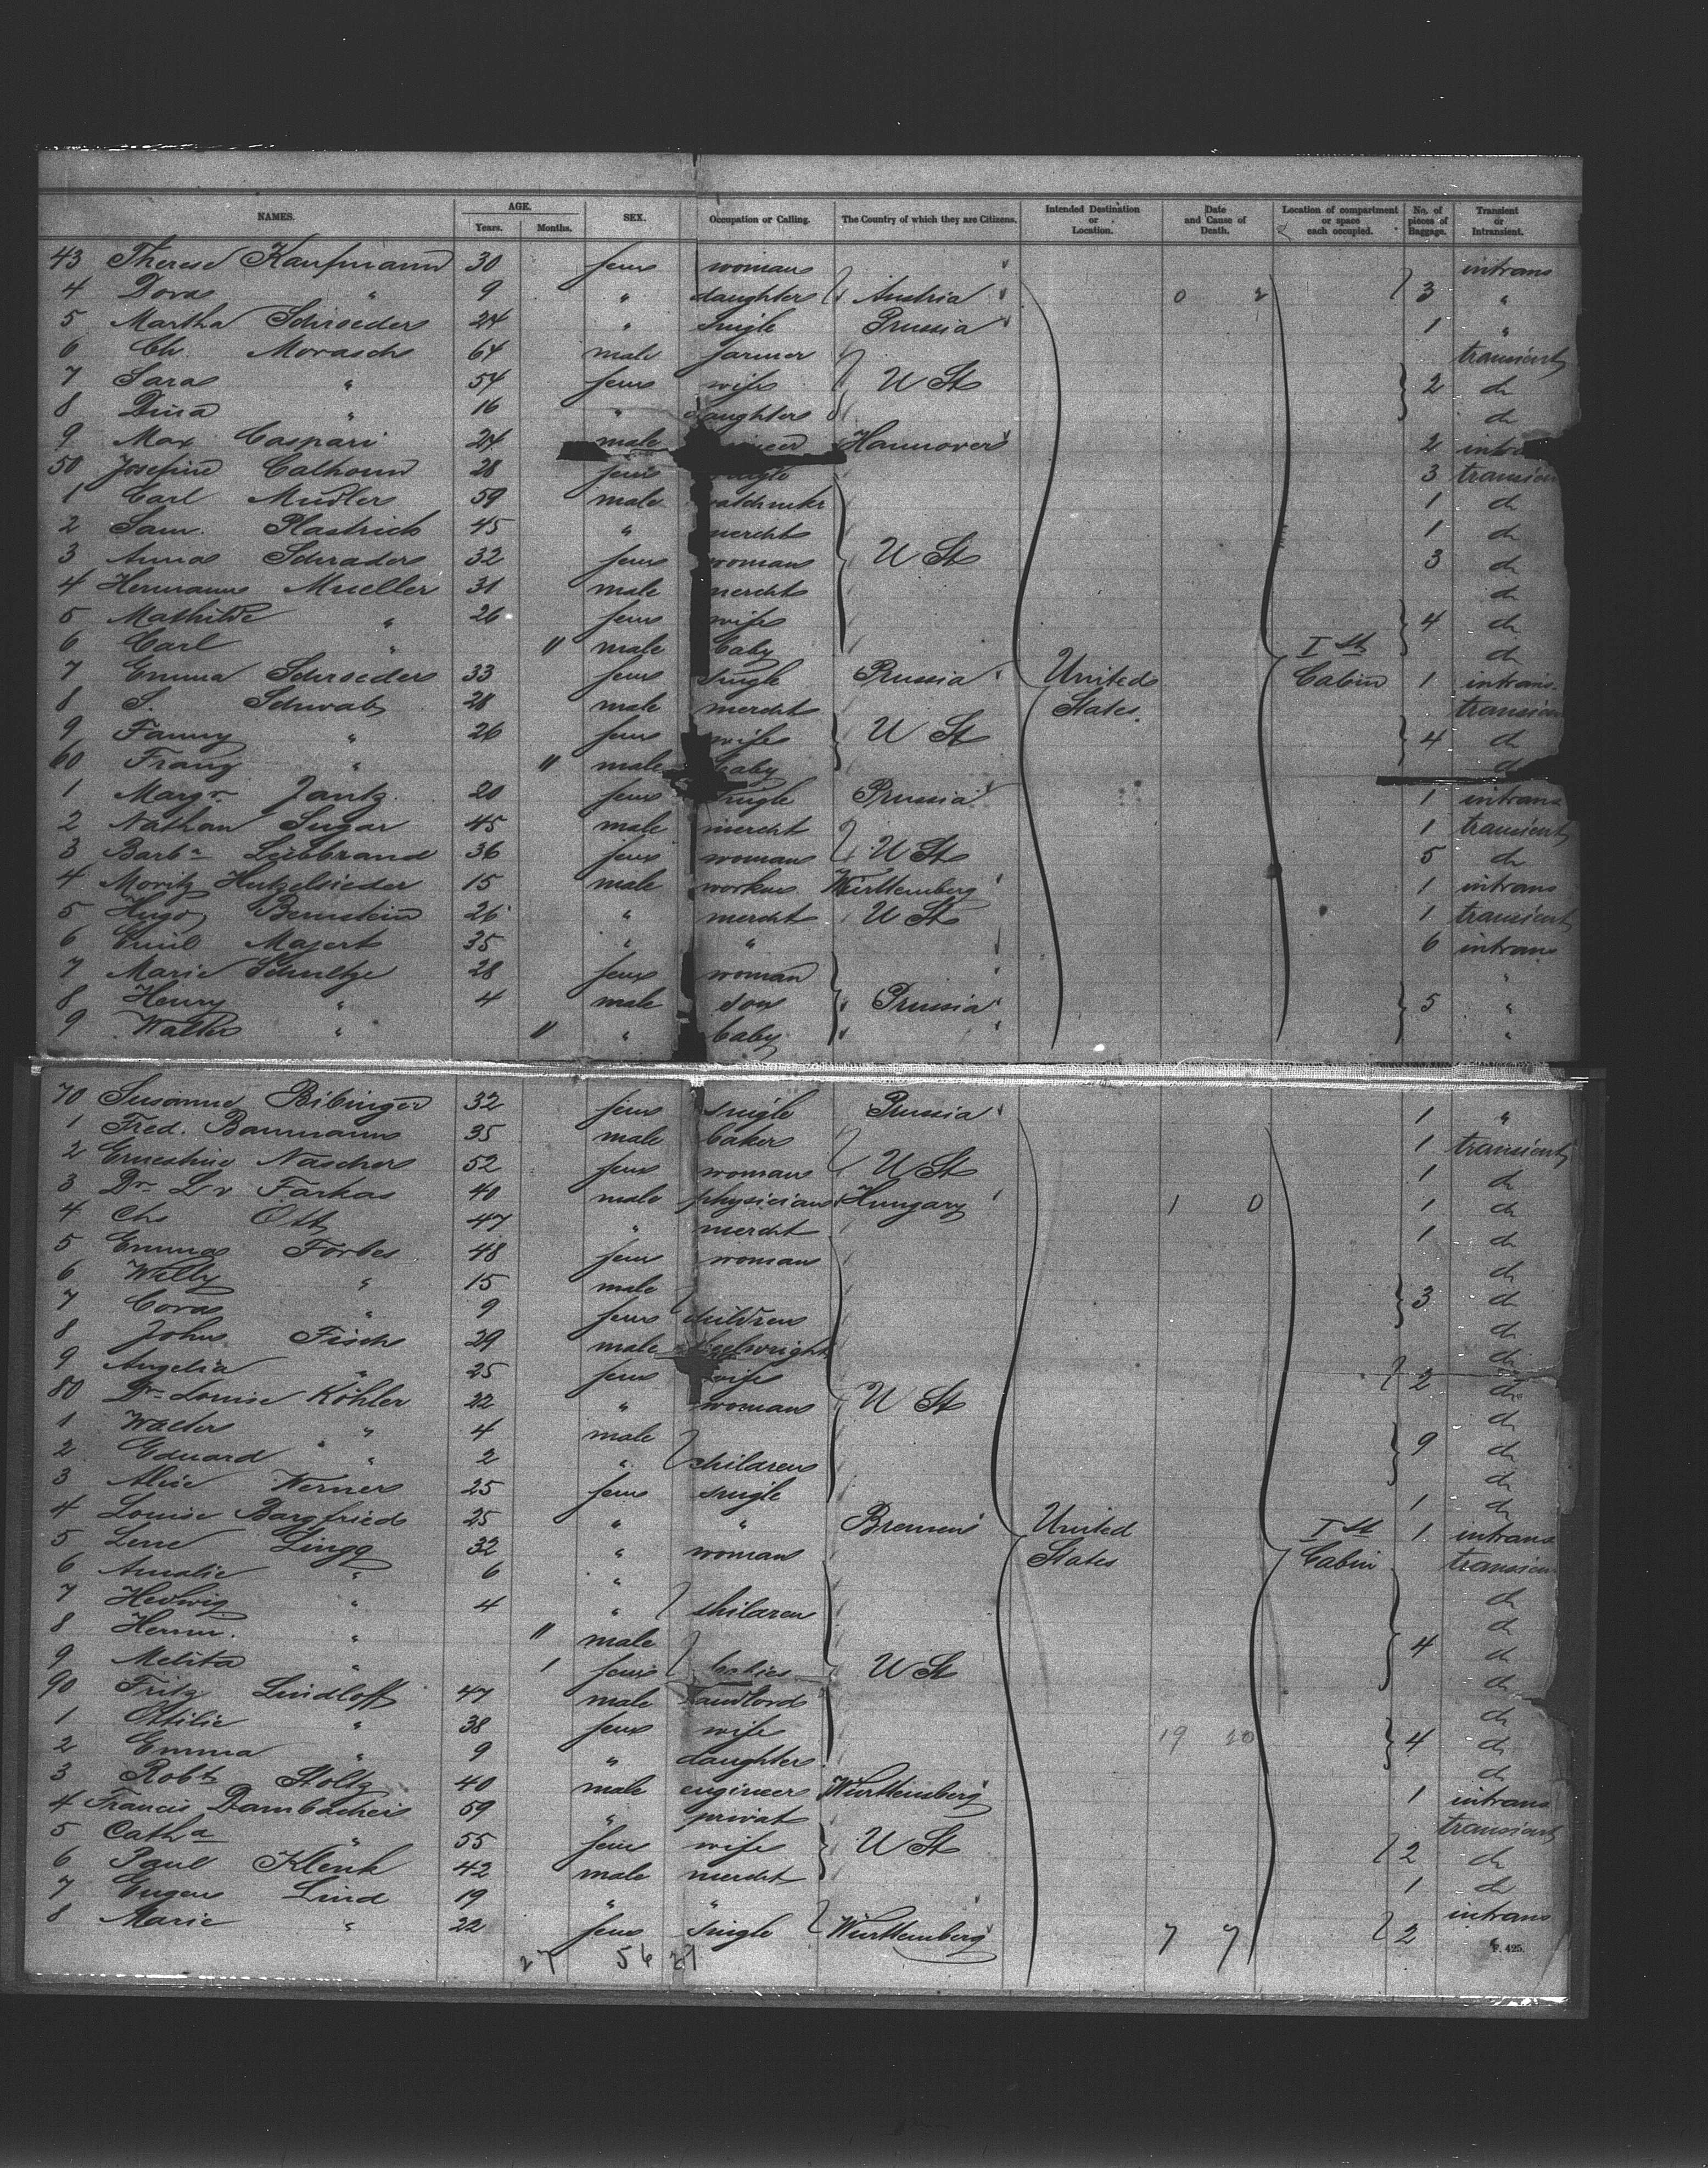 NAMES. AGE. Years. Months. SEX. Occupation or Calling. The Country of which they are Citizens. Intended Destination or Location. Date and Cause of Death. Location of compartment or space each occupied. No. of pieces of Baggage. Transient or Intransient.
43 Therese Kaufmann 30 fem woman intrans
4 Dora " 9 " daughter Austria 0 2 3 "
5 Martha Schroeder 24 " single Prussia 1 "
6 Ch. Morasch 64 male farmer transient
7 Sara " 54 fem wife U St 2 do
8 Dina " 16 " daughter do
9 Max Caspari 24 male Hannover 2 intra
50 Josefine Calhoun 28 fem single 3 transien
1 Carl Mudler 59 male 1 do
2 Sam. Plastrich 45 " mercht 1 do
3 Anna Schrader 32 fem woman U St 3 do
4 Hermann Mueller 31 male mercht do
5 Mathilde " 26 fem wife 4 do
6 Carl " 11 male baby Ist do
7 Emma Schroeder 33 fem single Prussia United Cabin 1 intrans.
8 S. Schwab 28 male mercht States. transien
9 Fanny " 26 fem wife U St 4 do
60 Franz " 11 male baby do
1 Margr. Jantz 20 fem single Prussia 1 intrans
2 Nathan Sugar 45 male mercht 1 transient
3 Barba Liebbrand 36 fem woman U St 5 do
4 Moritz Hutzelsieder 15 male workm. Württemberg 1 intrans
5 Hugo Bernstein 26 " mercht U St 1 transient
6 Emil Majert 35 " " 6 intrans
7 Marie Schultze 28 fem woman "
8 Henry " 4 male son Prussia 5 "
9 Walter " 11 " baby "
70 Susanne Bibinger 32 fem single Prussia 1 "
1 Fred. Baumann 35 male baker 1 transient
2 Ernestine Nascher 52 fem woman U St 1 do
3 Dr. Lv Farkas 40 male physician Hungary 1 0 1 do
4 Chs Ott 47 " mercht 1 do
5 Emma Forbes 48 fem woman do
6 Willy " 15 male 3 do
7 Cora " 9 fem children do
8 John Fisch 29 male do
9 Angelia " 25 fem wife 2 do
80 Dr. Louise Köhler 22 " woman U St do
1 Walter " 4 male 9 do
2 Eduard " 2 " children do
3 Alice Werner 25 fem single 1 do
4 Louise Bargfried 25 " " Bremen United Ist 1 intrans
5 Lene Lingg 32 " woman States Cabin transien
6 Amalie " 6 " do
7 Hedwig " 4 " children do
8 Herm. " 11 male 4 do
9 Melita " 1 fem babies U St do
90 Fritz Lindloff 47 male landlord do
1 Ottilie " 38 fem wife 19 20 4 do
2 Emma " 9 " daughter do
3 Robt Stoltz 40 male engineer Württemberg 1 intrans
4 Francis Dambacher 59 " privat transient
5 Catha " 55 fem wife U St 2 do
6 Paul Klenk 42 male mercht 1 do
7 Eugen Lind 19 " " intrans
8 Marie " 22 fem single Württemberg 7 7 2 "
27 56 27
P. 425.